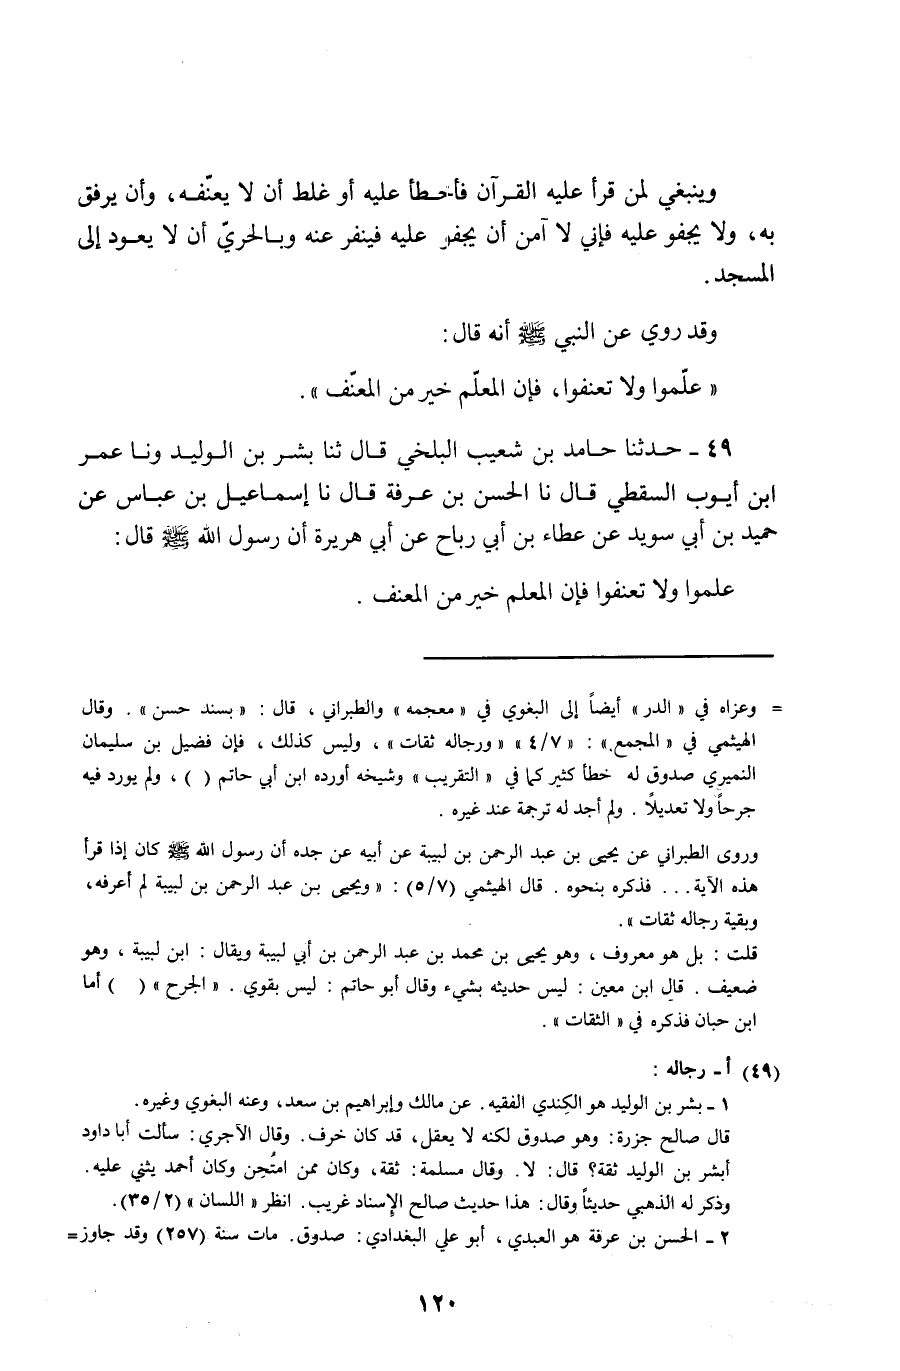 وينبغي لمن قرأ عليه القرآن فأخطأ عليه أو غلط أن لا يعنّفه، وأن يرفق
به، ولا يجفو عليه فإني لا آمن أن يجفو عليه فينفر عنه وبالحريّ أن لا يعود إلى
المسجد.
وقد روي عن النبي ﷺ أنه قال:
« علّموا ولا تعنفوا، فإن المعلّم خير من المعنّف ».
٤٩ ـ حدثنا حامد بن شعيب البلخي قال ثنا بشر بن الوليد ونا عمر
ابن أيوب السقطي قال نا الحسن بن عرفة قال نا إسماعيل بن عباس عن
حميد بن أبي سويد عن عطاء بن أبي رباح عن أبي هريرة أن رسول الله ﷺ قال:
علموا ولا تعنفوا فإن المعلم خير من المعنف .
= وعزاه في « الدر » أيضاً إلى البغوي في « معجمه » والطبراني ، قال : « بسند حسن » . وقال
الهيثمي في « المجمع » : « ٤/٧ » « ورجاله ثقات » ، وليس كذلك ، فإن فضيل بن سليمان
النميري صدوق له خطأ كثير كما في « التقريب » وشيخه أورده ابن أبي حاتم ( ) ، ولم يورد فيه
جرحاً ولا تعديلاً . ولم أجد له ترجمة عند غيره .
وروى الطبراني عن يحيى بن عبد الرحمن بن لبيبة عن أبيه عن جده أن رسول الله ﷺ كان إذا قرأ
هذه الآية... فذكره بنحوه . قال الهيثمي (٥/٧) : « ويحيى بن عبد الرحمن بن لبيبة لم أعرفه،
وبقية رجاله ثقات ».
قلت : بل هو معروف ، وهو يحيى بن محمد بن عبد الرحمن بن أبي لبيبة ويقال : ابن لبيبة ، وهو
ضعيف . قال ابن معين : ليس حديثه بشيء وقال أبو حاتم : ليس بقوي . « الجرح » ( ) أما
ابن حبان فذكره في « الثقات » .
(٤٩) أ ـ رجاله :
١ ـ بشر بن الوليد هو الكندي الفقيه. عن مالك وإبراهيم بن سعد، وعنه البغوي وغيره.
قال صالح جزرة: وهو صدوق لكنه لا يعقل، قد كان خرف. وقال الآجري: سألت أبا داود
أبشر بن الوليد ثقة؟ قال: لا. وقال مسلمة: ثقة، وكان ممن امتُحن وكان أحمد يثني عليه.
وذكر له الذهبي حديثاً وقال: هذا حديث صالح الإسناد غريب. انظر « اللسان » (٣٥/٢).
٢ ـ الحسن بن عرفة هو العبدي ، أبو علي البغدادي: صدوق. مات سنة (٢٥٧) وقد جاوز=
١٢٠